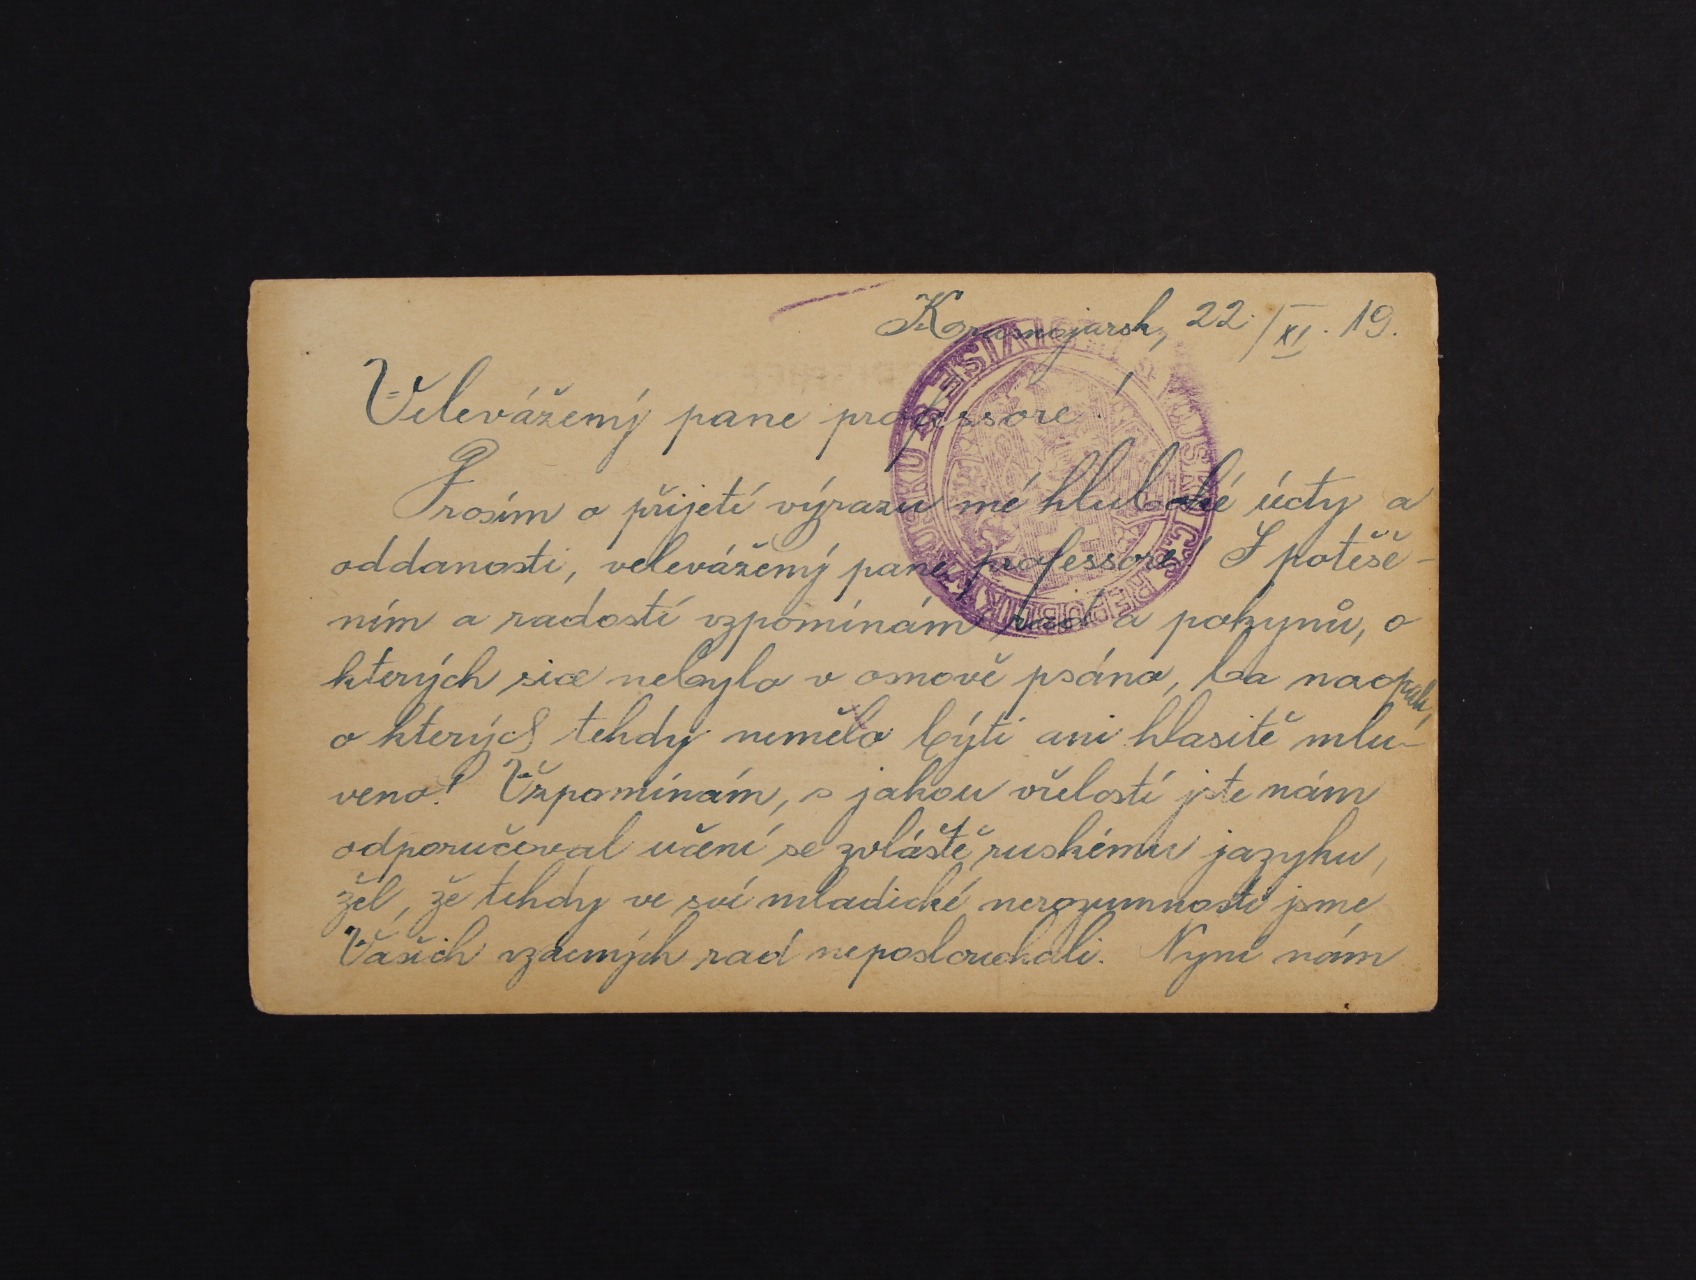 Krasnojarsk, 22./XI. 19.
Velevážený pane professore!
Prosím o přijetí výrazu mé hluboké úcty a
oddanosti, velevážený pane professore! S potěše-
ním a radostí vzpomínám rad a pokynů, o
kterých sice nebylo v osnově psáno, ba naopak,
o kterých tehdy nemělo býti ani hlasitě mlu-
veno! Vzpomínám, s jakou vřelostí jste nám
odporučoval učení se zvláště ruskému jazyku,
žel, že tehdy ve své mladické nerozumnosti jsme
Vašich vzácných rad neposlouchali. Nyní nám
VOJSKA Č.S. REPUBLIKY NA RUSKU